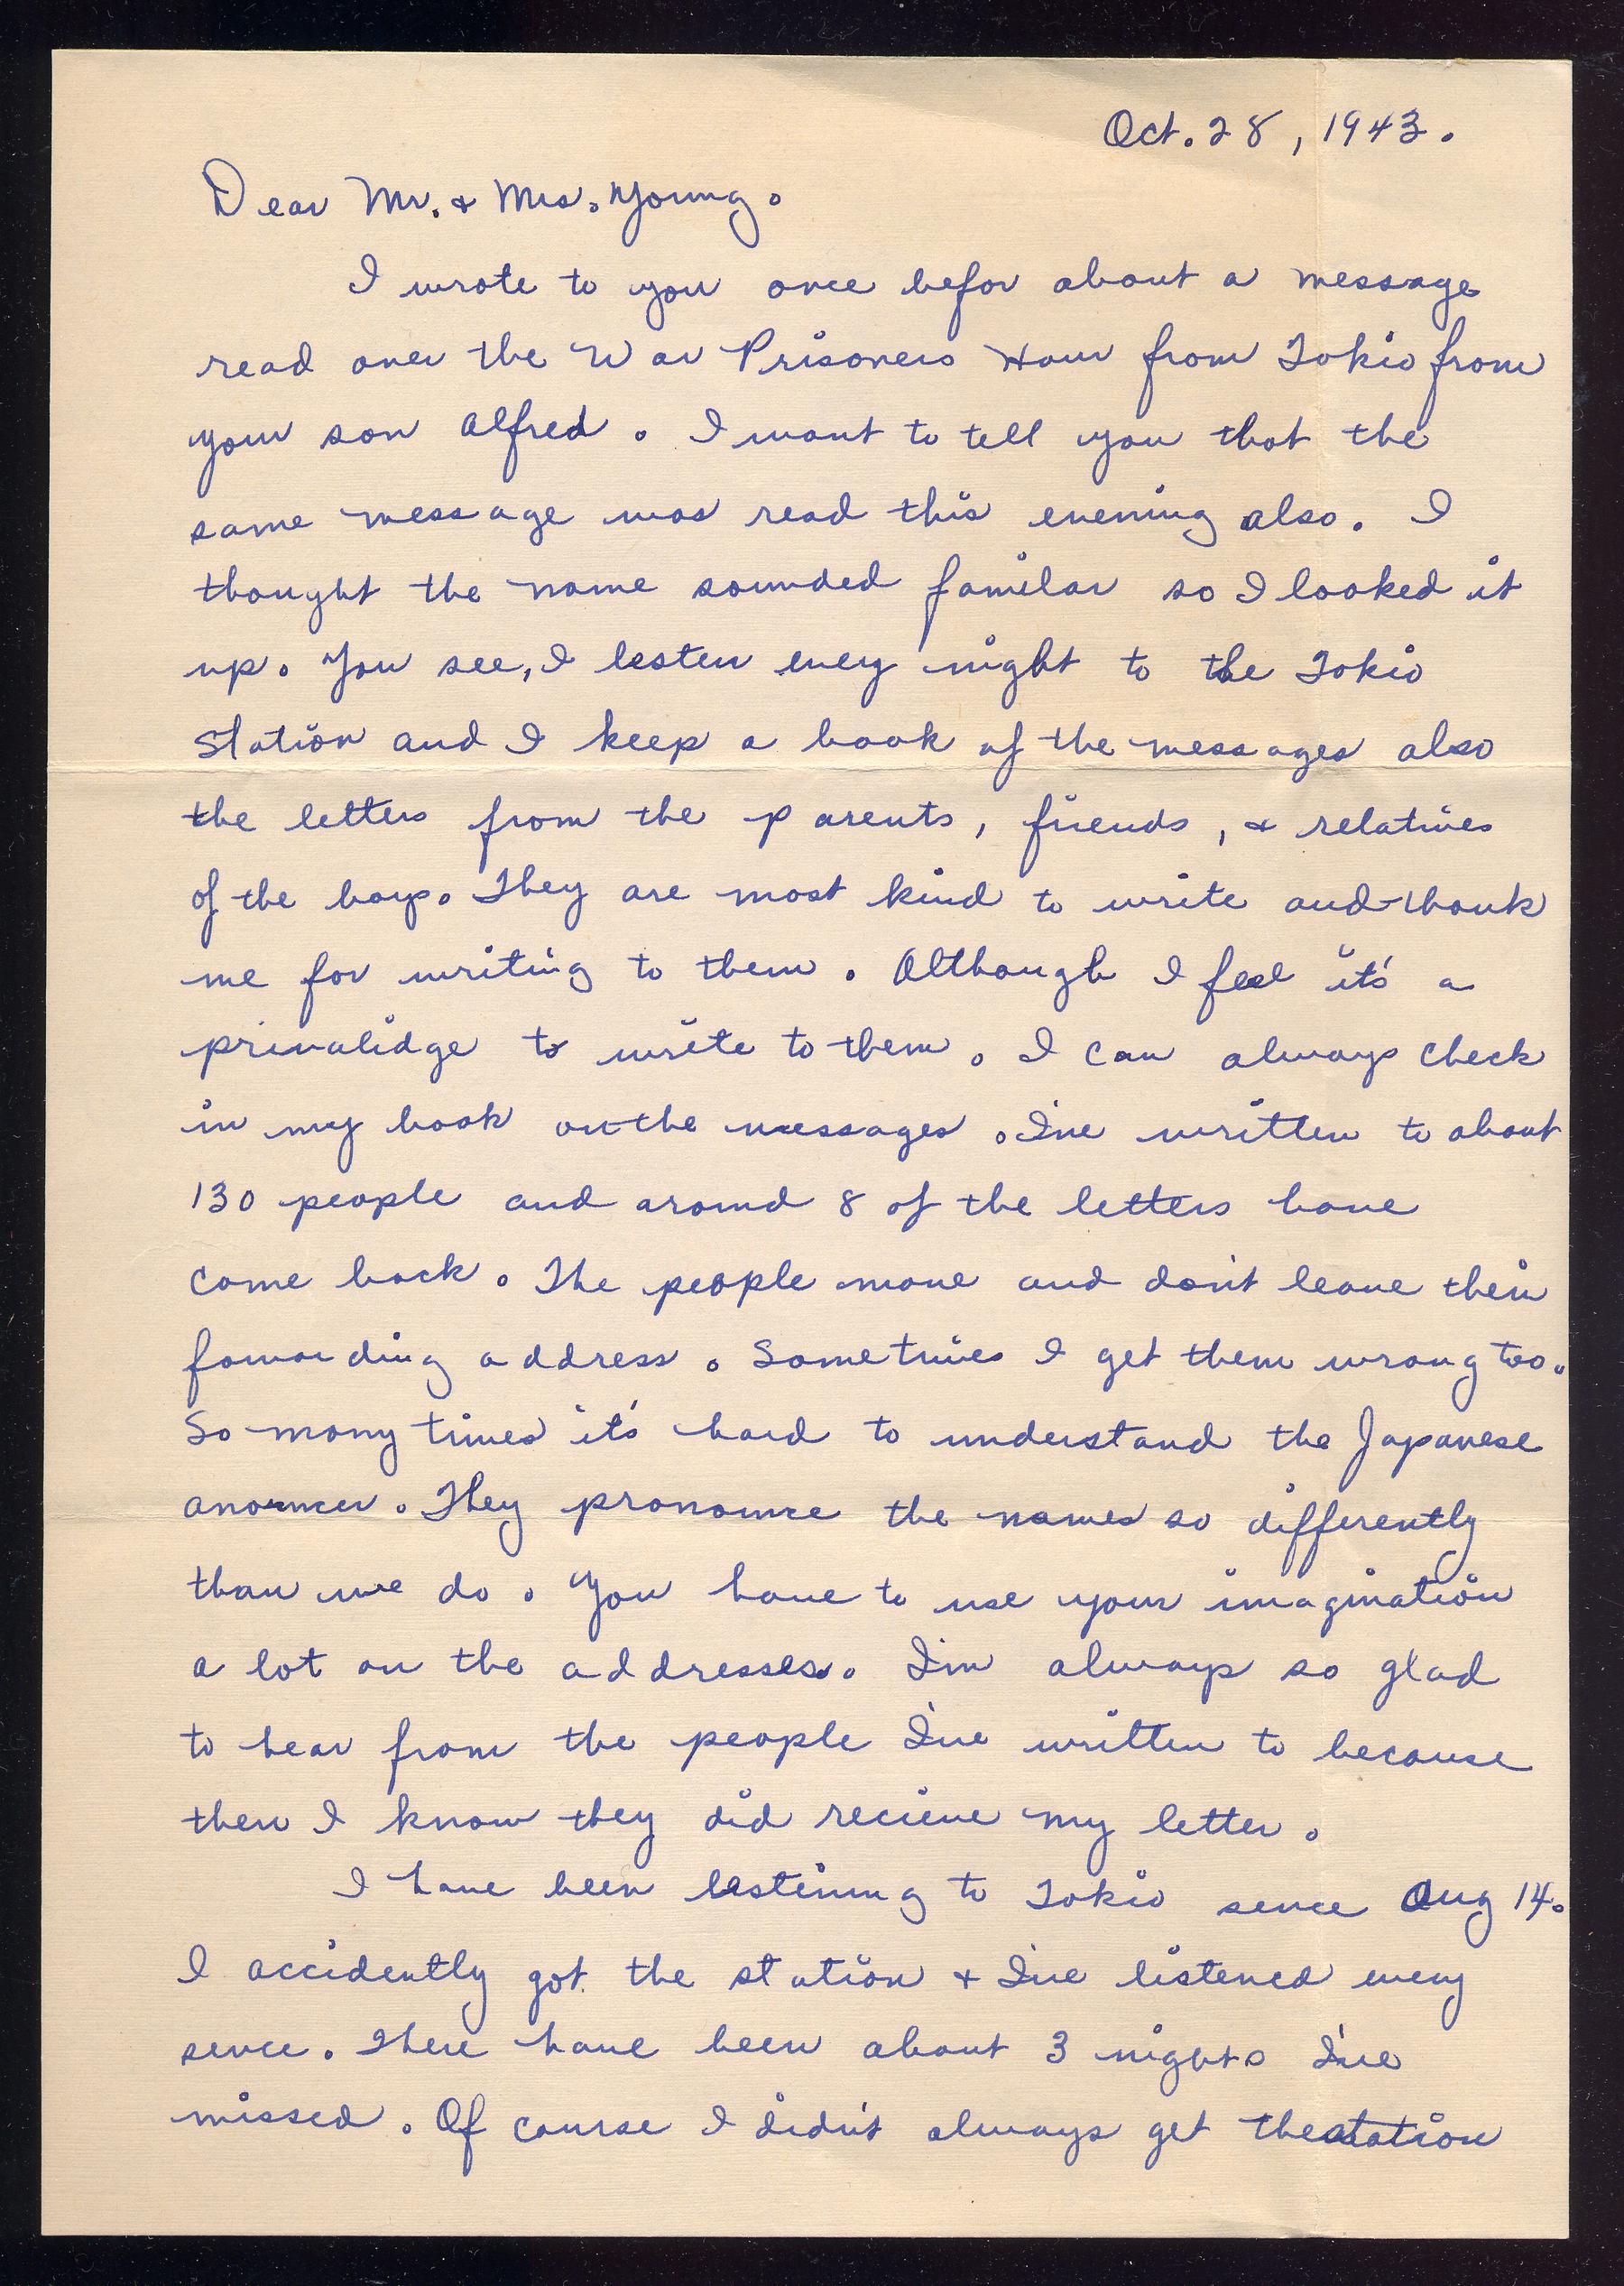 Oct. 28, 1943.
Dear Mr. & Mrs. Young.
I wrote to you once befor about a message
read over the War Prisoners Hour from Tokio from
your son Alfred. I want to tell you that the
same message was read this evening also. I
thought the name sounded familar so I looked it
up. You see, I lesten every night to the Tokio
Station and I keep a book of the messages also
the letters from the parents, friends, & relatives
of the boys. They are most kind to write and thank
me for writing to them. Although I feel it's a
privalidge to write to them. I can always check
in my book on the messages. I've written to about
130 people and around 8 of the letters have
come back. The people move and don't leave their
fowarding address. Sometimes I get them wrong too.
So many times it's hard to understand the Japanese
anouncer. They pronounce the names so differently
than we do. You have to use your imagination
a lot on the addresses. I'm always so glad
to hear from the people I've written to because
then I know they did recieve my letter.
I have been lestening to Tokio sence Aug 14.
I accidently got the station & I've listened every
sence. There have been about 3 nights I've
missed. Of course I didn't always get the station